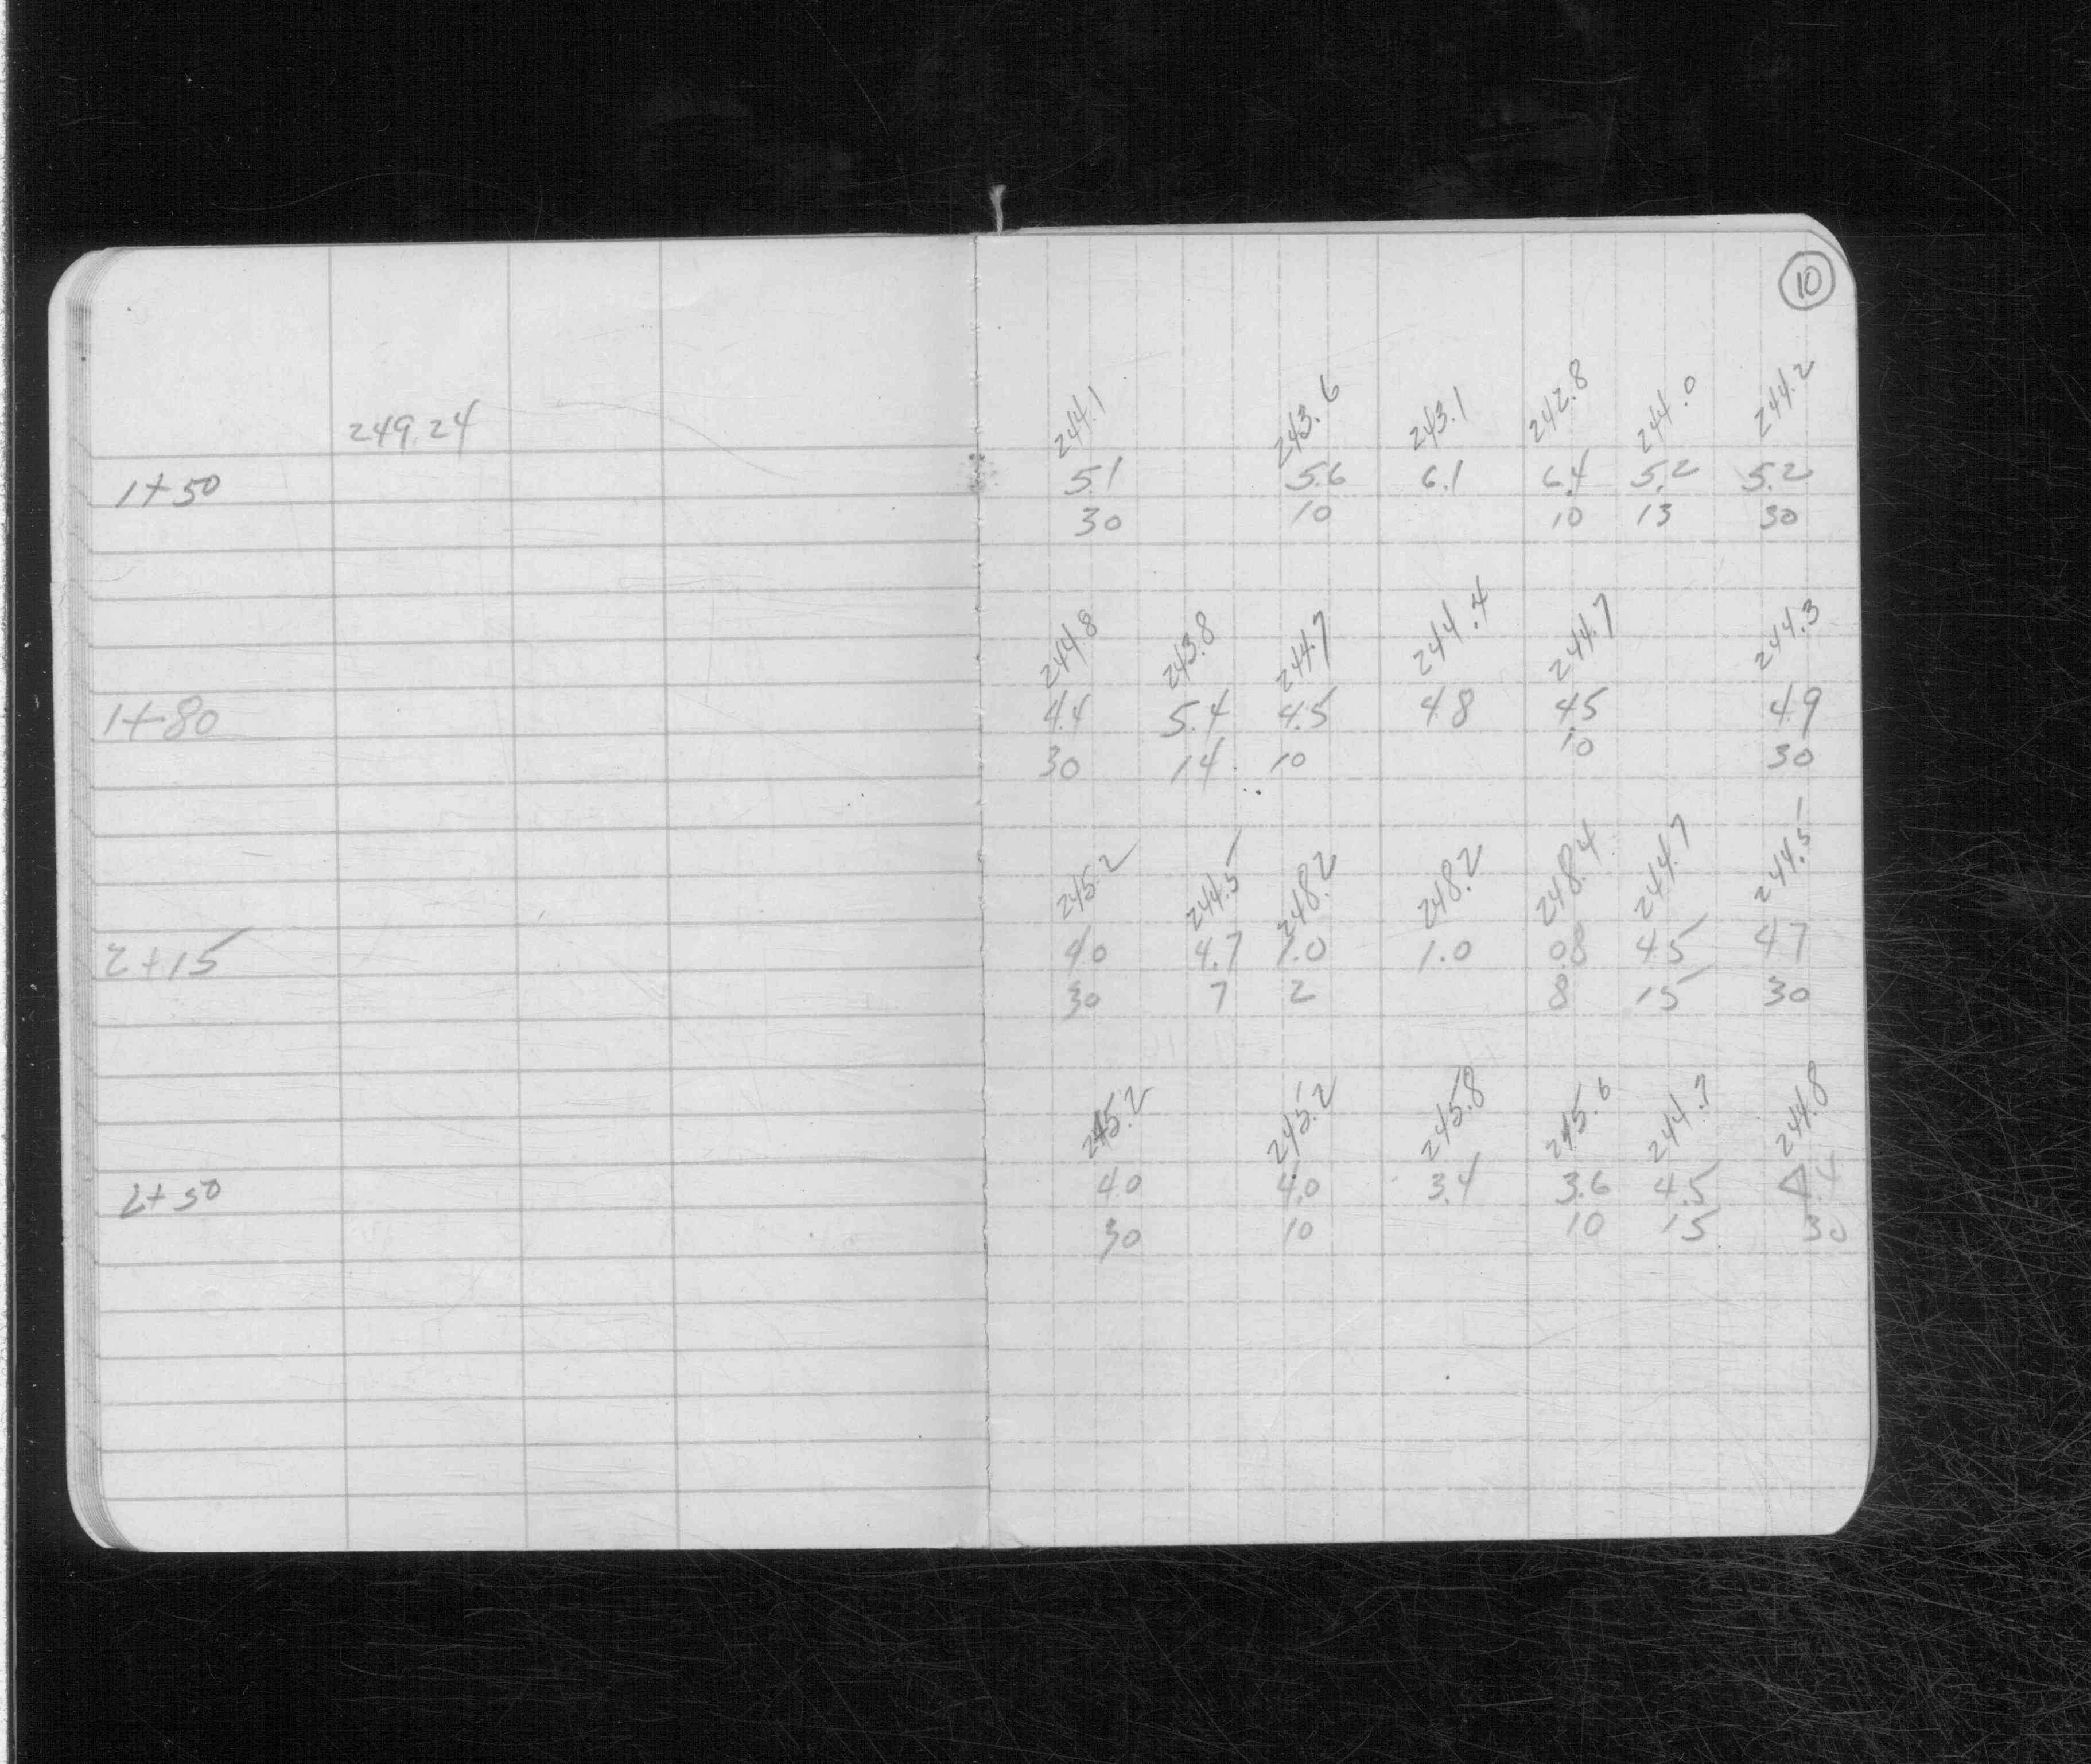 10
249.24
244.1 243.6 243.1 242.8 244.0 244.2
1+50 5.1 5.6 6.1 6.4 5.2 5.2
30 10 10 13 30
244.8 243.8 244.7 244.4 244.7 244.3
1+80 4.4 5.4 4.5 4.8 4.5 4.9
30 14 10 10 30
245.2 244.5 248.2 248.2 248.4 244.7 244.5
2+15 4.0 4.7 1.0 1.0 0.8 4.5 4.7
30 7 2 8 15 30
245.2 245.2 245.8 245.6 244.7 244.8
2+50 4.0 4.0 3.4 3.6 4.5 4.4
30 10 10 15 30